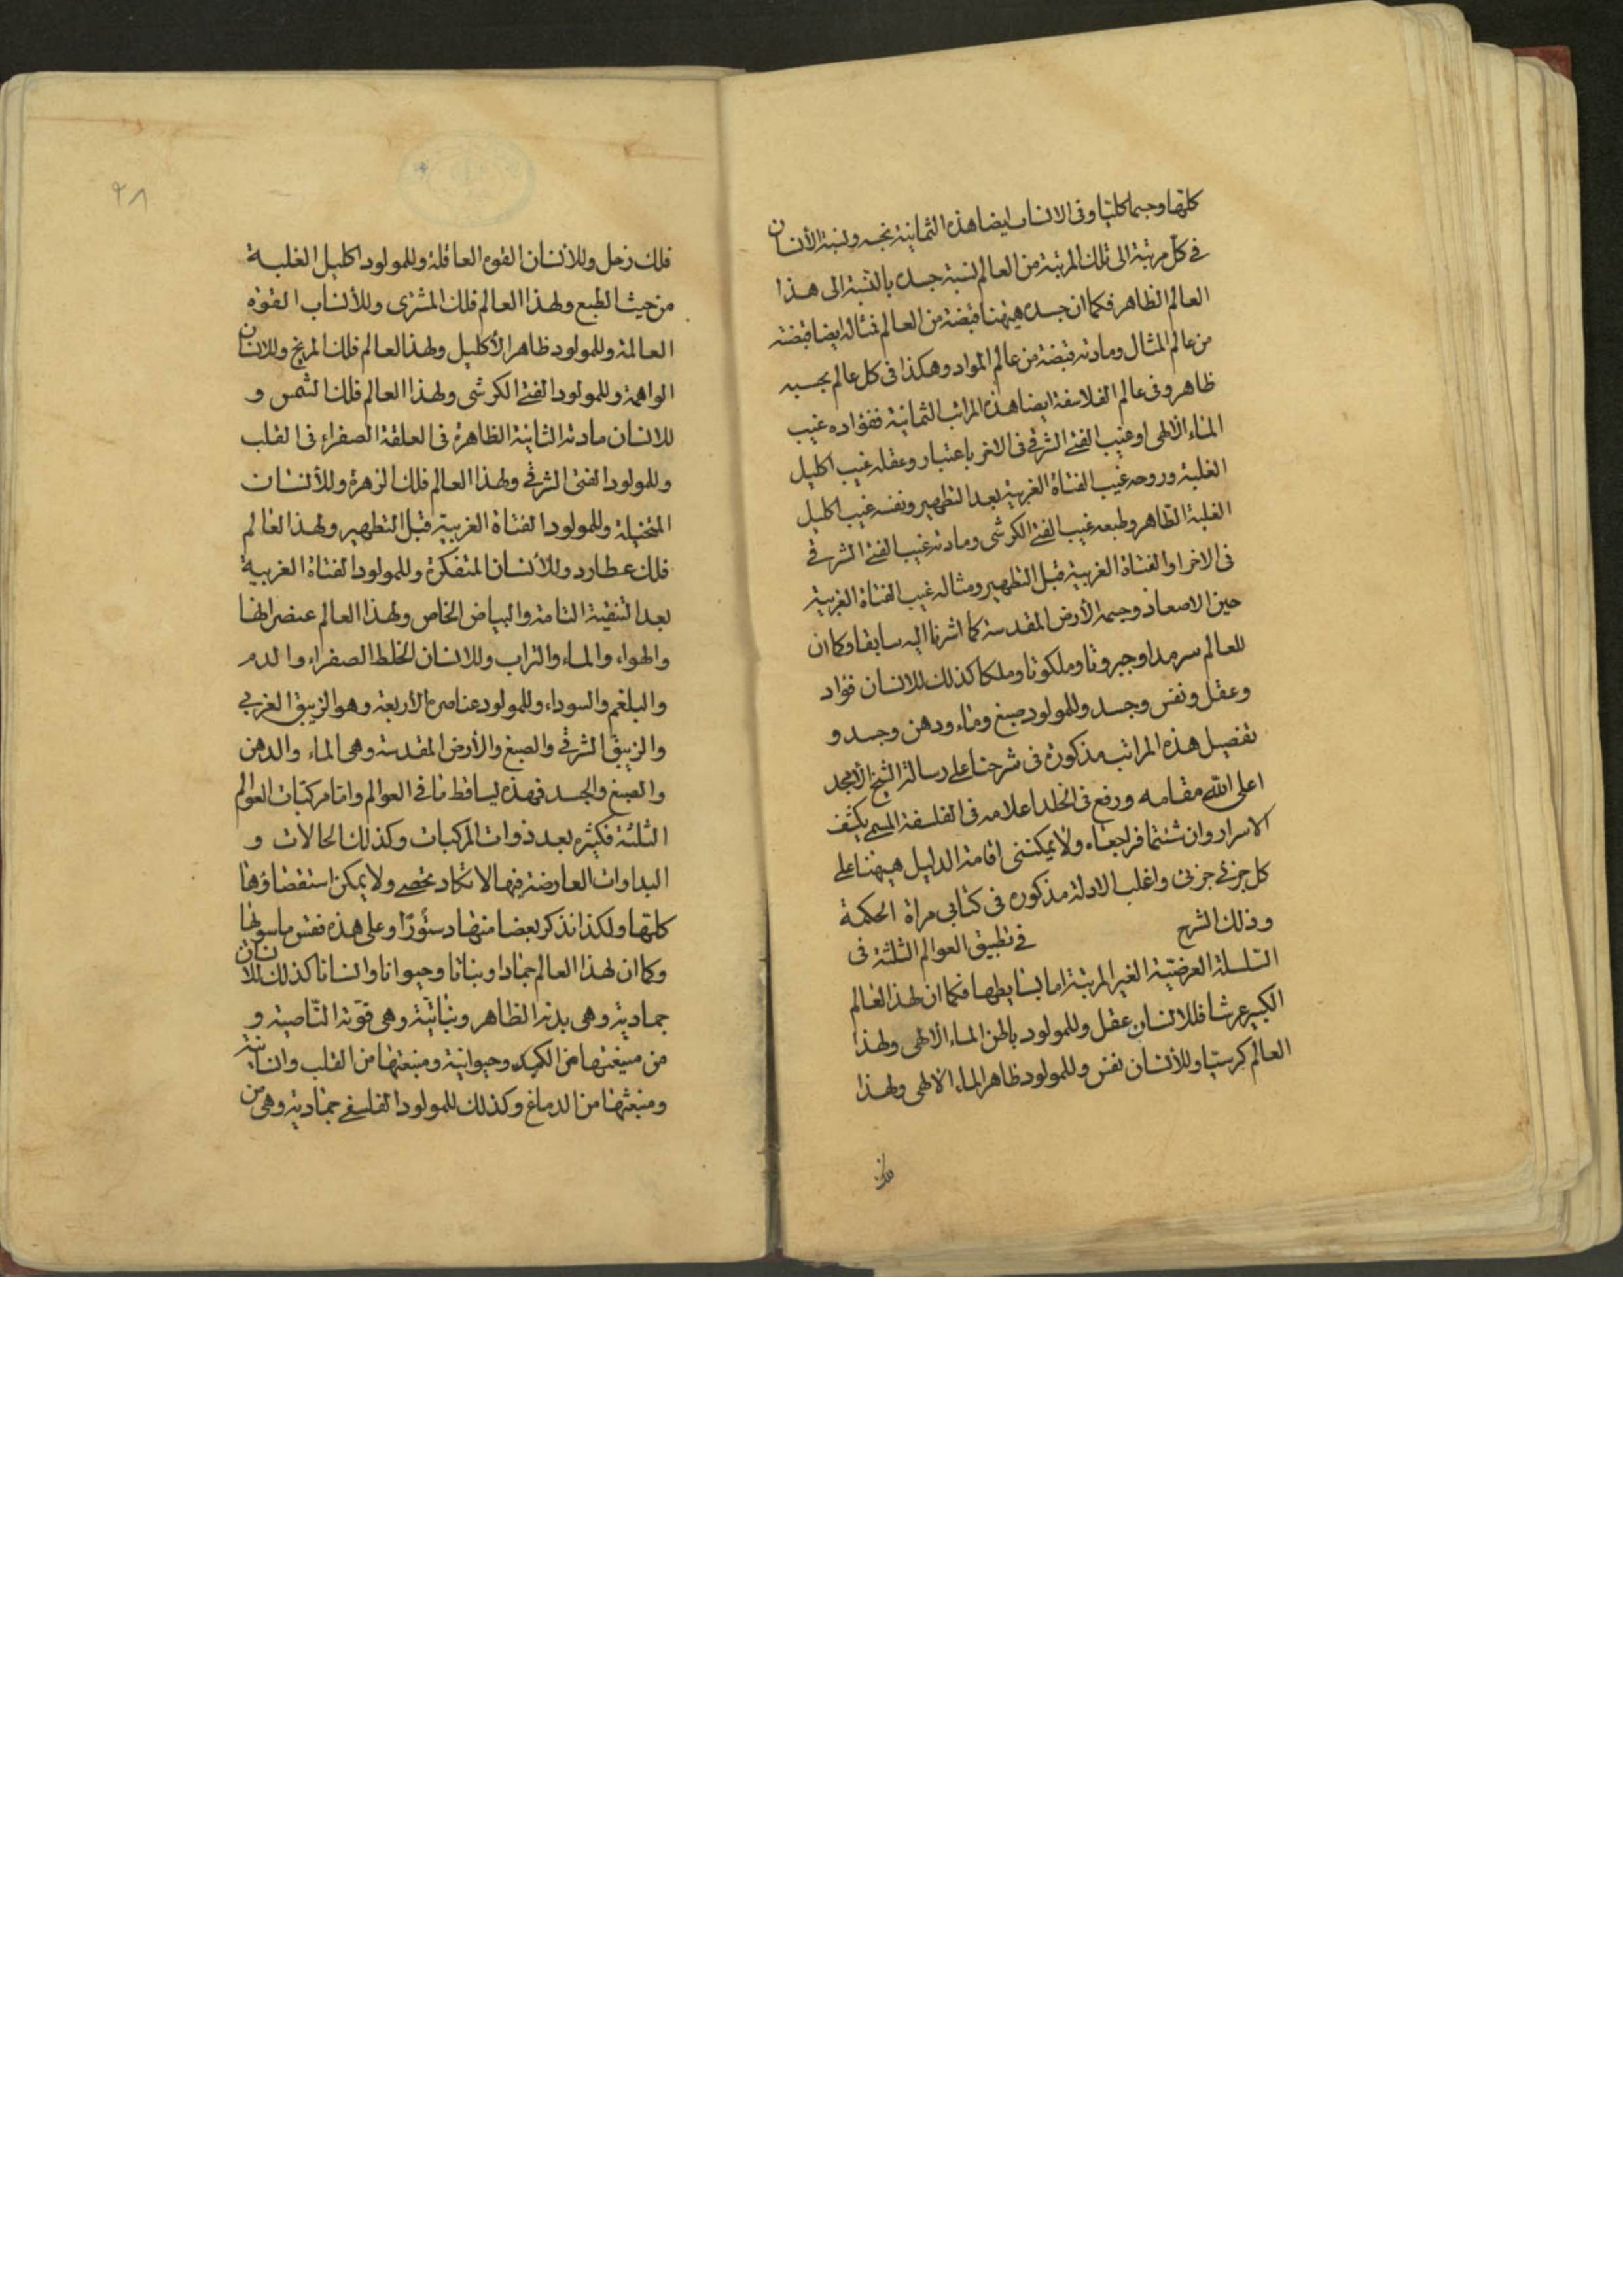 كلتها وجسما كليا وفى الانسان ايضا هذه الثمانية بحسبه ونسبة الأنسان
فى كل مرتبة الى تلك المرتبة من العالم نسبة جسده بالنسبة الى هذا
العالم الظاهر فكما ان جسده هيهنا قبضة من العالم فمثاله ايضا قبضة
من عالم المثال ومادته قبضة من عالم المواد وهكذا فى كل عالم بحسبه
ظاهر وفى عالم الفلاسفة ايضا هذه المراتب الثمانية ففؤاده غيب
الماء الألهى او غيب الفتى الشرقى فى الاخر باعتبار وعقله غيب اكليل
الغلبة وروحه غيب الفتاة الغربية بعد التطهير ونفسه غيب اكليل
الغلبة الظاهر وطبعه غيب الفتى الكرشى ومادته غيب الفتى الشرقى
فى الاخر او الفتاة الغربية قبل التطهير ومثاله غيب الفتاة الغربية
حين الاصعاد وجسمه الأرض المقدسة كما اشرنا اليه سابقا وكما ان
للعالم سرمدا وجبروتا وملكوتا وملكا كذلك للانسان فؤاد
وعقل ونفس وجسد وللمولود صبغ وماء ودهن وجسد و
تفصيل هذه المراتب مذكورة فى شرحنا على رسالة الشيخ الأمجد
اعلى الله مقامه ورفع فى الخلد اعلامه فى الفلسفة المسمى بكشف
الاسرار وان شئتما فراجعاه ولا يمكننى اقامة الدليل هيهنا على
كل جزئى جزئى واغلب الادلة مذكورة فى كتابى مراة الحكمة
وذلك الشرح فى تطبيق العوالم الثلثة فى
السلسلة العرضية الغير المرتبة اما بسايطها فكما ان لهذا العالم
الكبير عرشا فللانسان عقل وللمولود باطن الماء الألهى ولهذا
العالم كرسيا وللأنسان نفس وللمولود ظاهر الماء الالهى ولهذا
فلك
٩٨
فلك زحل وللأنسان القوه العاقلة وللمولود اكليل الغلبة
من حيث الطبع ولهذا العالم فلك المشترى وللأنسان القوة
العالمة وللمولود ظاهر الأكليل ولهذا العالم فلك المريخ وللانسان
الواهمة وللمولود الفتى الكرشى ولهذا العالم فلك الشمس و
للانسان مادته الثانية الظاهرة فى العلقة الصفراء فى القلب
وللمولود الفتى الشرقى ولهذا العالم فلك الزهرة وللأنسان
المتخيلة وللمولود الفتاة الغربية قبل التطهير ولهذا العالم
فلك عطارد وللأنسان المتفكرة وللمولود الفتاة الغربية
بعد التنقية التامة والبياض الخاص ولهذا العالم عنصر النار
والهواء والماء والتراب وللانسان الخلط الصفراء والدم
والبلغم والسوداء وللمولود عناصره الأربعة وهو الزيبق الغربى
والزيبق الشرقى والصبغ والأرض المقدسة وهى الماء والدهن
والصبغ والجسد فهذه بسائط ما فى العوالم واما مركبات العوالم
الثلثة فكثيره بعدد ذوات المركبات وكذلك الحالات و
البداوات العارضة فيها لا تكاد تحصى ولا يمكن استقصاؤها
كلتها ولكذا نذكر بعضا منها دستورا وعلى هذه فقس ما سويها
وكما ان لهذا العالم جمادا ونباتا وحيوانا وانسانا كذلك للانسان
جمادية وهى بدنه الظاهر ونباتية وهى قوته النامية و
من الكبد وحيوانية ومنبعثها من القلب وانسانية
ومنبعثها من الدماغ وكذلك للمولود الفلسفى جمادية وهى من